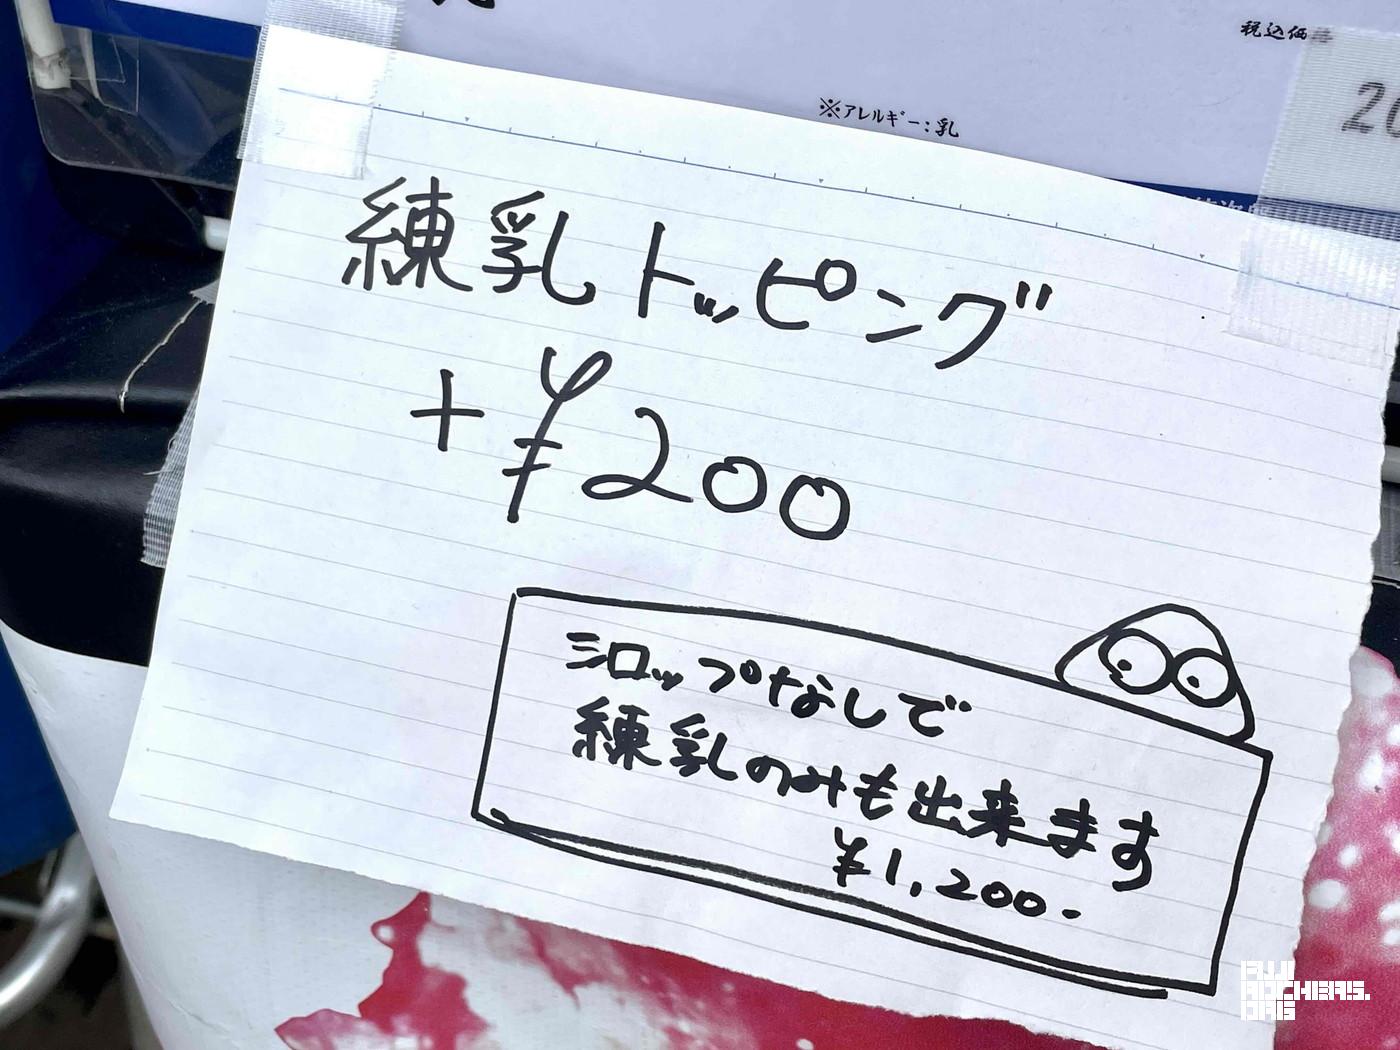 税込価格
※アレルギー：乳
20
練乳トッピング
+¥200
シロップなしで
練乳のみも出来ます
¥1,200-
FUJI
ROCKERS.
ORG